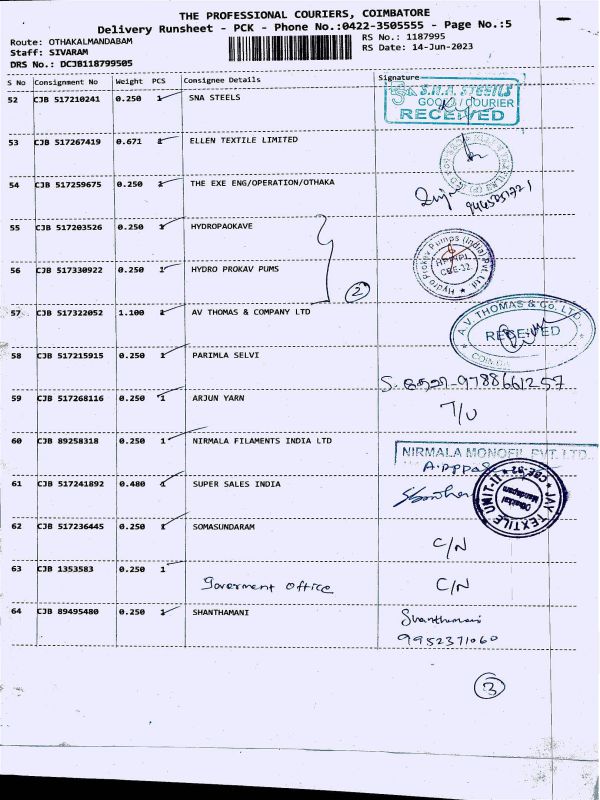 THE PROFESSIONAL COURIERS, COIMBATORE
Delivery Runsheet - PCK - Phone No.:0422-3505555 - Page No.:5
Route: OTHAKALMANDABAM
Staff: SIVARAM
DRS No.: DCJB118799505
RS No.: 1187995
RS Date: 14-Jun-2023
S No Consignment No Weight PCS Consignee Details Signature
52 CJB 517210241 0.250 1 SNA STEELS
S.N.A. STEELS
GOODS / COURIER
RECEIVED
53 CJB 517267419 0.671 1 ELLEN TEXTILE LIMITED
54 CJB 517259675 0.250 1 THE EXE ENG/OPERATION/OTHAKA
55 CJB 517203526 0.250 1 HYDROPAOKAVE
Hydro Prokav Pumps (India) Pvt. Ltd
HPPIPL
CBE-32.
56 CJB 517330922 0.250 1 HYDRO PROKAV PUMS
2
57 CJB 517322052 1.100 1 AV THOMAS & COMPANY LTD
A.V. THOMAS & Co. LTD.
RECEIVED
58 CJB 517215915 0.250 1 PARIMLA SELVI
9788661257
59 CJB 517268116 0.250 1 ARJUN YARN
T/U
60 CJB 89258318 0.250 1 NIRMALA FILAMENTS INDIA LTD
NIRMALA MONOFIL PVT. LTD.
61 CJB 517241892 0.480 1 SUPER SALES INDIA
JAY TEXTILE UNIT-II
CBE-32
Othakkal
Mandapam
62 CJB 517236445 0.250 1 SOMASUNDARAM
C/N
63 CJB 1353583 0.250 1
Goverment office
C/N
64 CJB 89495480 0.250 1 SHANTHAMANI
Shanthamani
9952371060
3